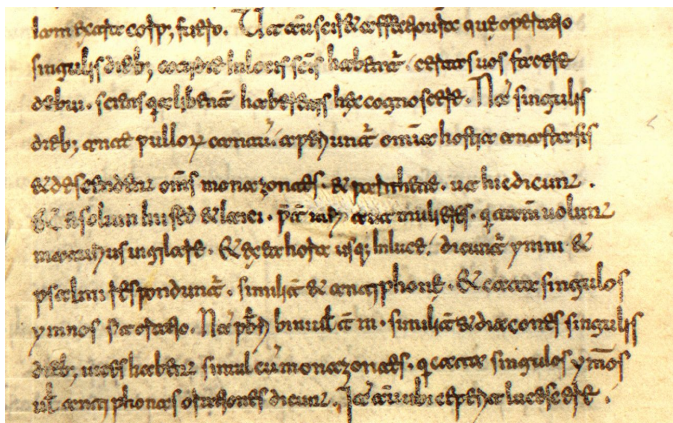 iam exacta corp; fuero. Ut autem sciret affectio uestra que operatio
singulis dieb; cotidie in locis scis habeatur. certas uos facere
debui. sciens qa libenter haberetis hec cognoscere. Nam singulis
dieb; ante pullorum cantu. aperiuntur omnia hostia anastasis
& descendent oms monazontes. & parthene. ut hic dicunt.
& solum hii sed & laici. uiri aut mulieres. qui tam uolunt
uigilare. & ex ea hora usq; in luce. dicuntur ymni &
psalmi responduntur. similiter & antiphone. & cata singulos
ymnos fit oratio. Nam prbi bini uel t ni. similiter & diacones singulis
dieb; uices habent simul cum monazontes. qui cata singulos ymnos
uel antiphonas orationes dicunt. Iam autem ubi ceperit lucescere.